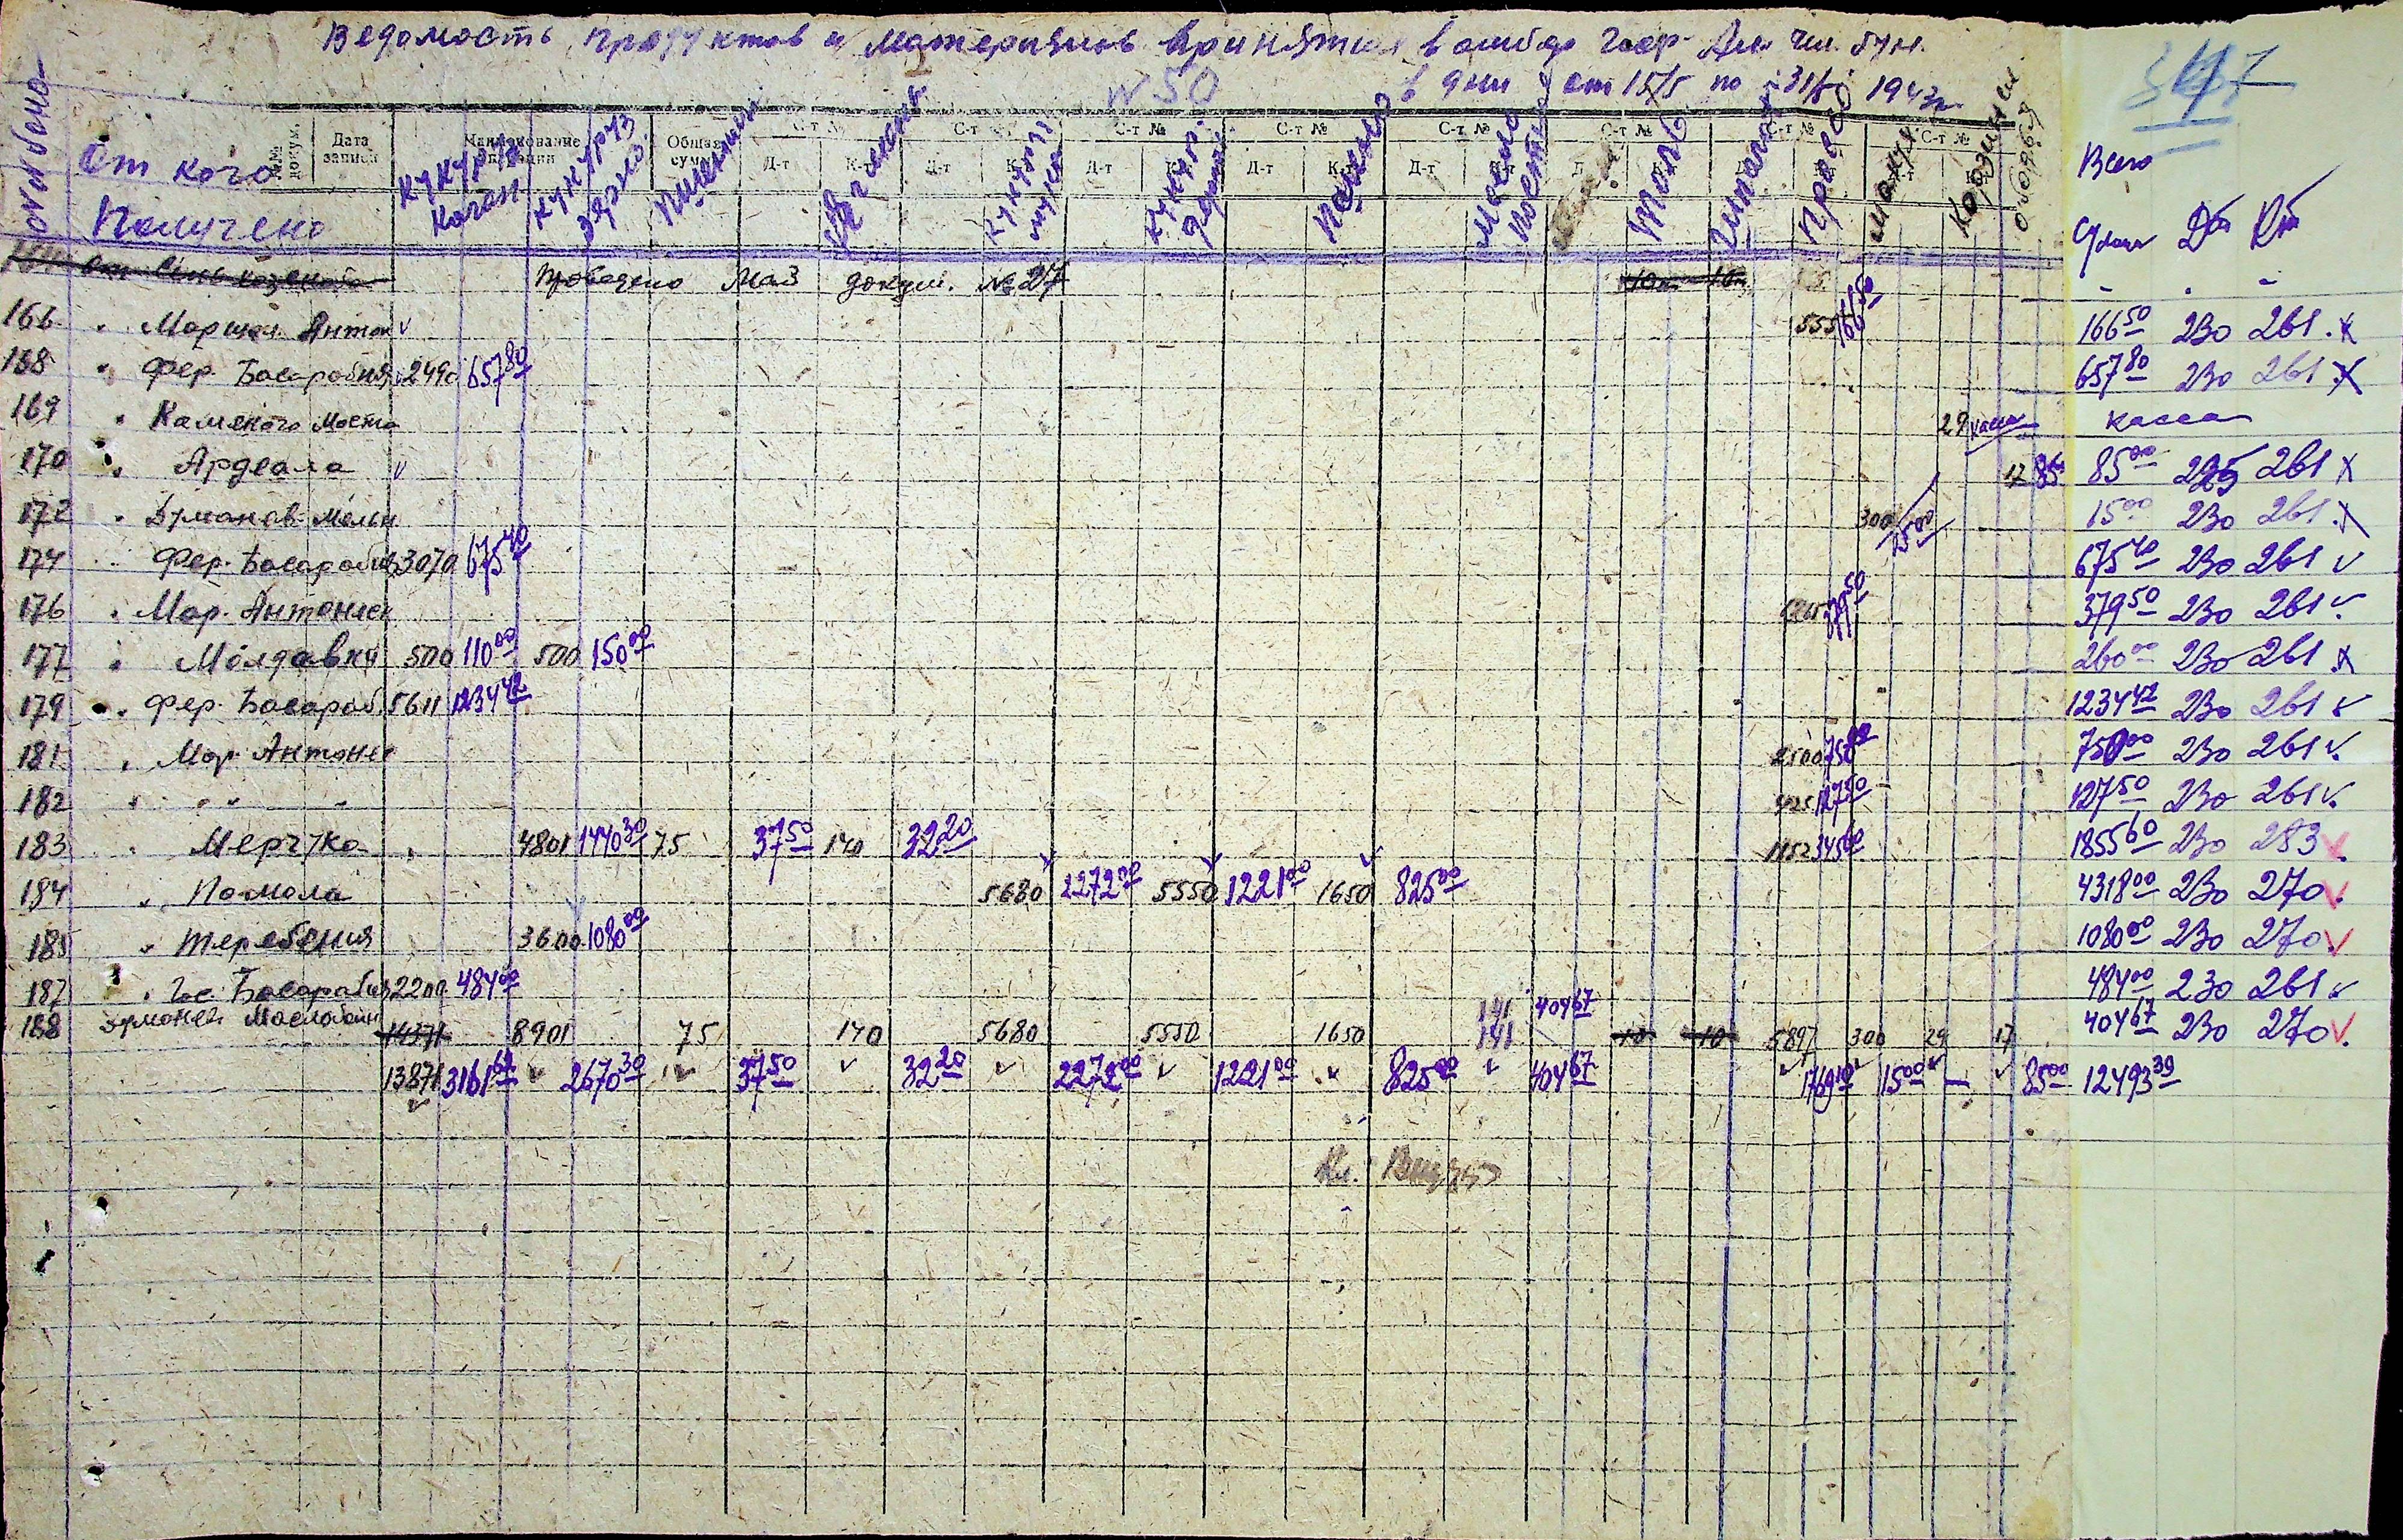 Ведомость продуктов и материялов принятия в амбар
№ 50
в дни от 15/5 по 31/5 1943г.
347
№№ бона
От кого
Получено
№№ докум.
Дата записи
Наименование
Общая сумма
С-т № С-т № С-т № С-т № С-т № С-т № С-т № С-т №
Д-т К-т Д-т К-т Д-т К-т Д-т К-т Д-т
Кукуруза кочан
Кукуруз зерно
Пшеницы
Ячменя
Кукурузн мука
Кукур.
Масло постн
Толь
Просо
Макух
Керосин
Всего
Сумма Дт Кт
Проведено Май докум. № 27
10 10
166 " Маршал Антон v 555 166 50 166 50 230 261 . x
168 " Фер. Басарабия 2490 657 80 657 80 230 261 x
169 " Каменого Моста 29 касса касса
170 " Ардеала v 17 85 85 00 225 261 x
172 " Думанов. Мельн 300 15 00 15 00 230 261 . x
174 " Фер. Басарабия 3070 675 40 675 40 230 261 v
176 " Мар. Антонеск 1265 379 50 379 50 230 261 v
177 " Молдавки 500 110 00 500 150 00 260 00 230 261 x
179 " Фер. Басараб. 5611 1234 42 1234 42 230 261 v
181 " Мар. Антонес 2500 750 00 750 00 230 261 v
182 " " " " 425 127 50 127 50 230 261 v
183 " Мерчука 4801 1440 30 75 37 50 140 32 20 1152 345 60 1855 60 230 283 v
184 " Помола 5680 2272 00 5550 1221 00 1650 825 00 4318 00 230 270 v
185 " Теребения 3600 1080 00 1080 00 230 270 v
187 " Гос. Басарабия 2200 484 00 484 00 230 261 v
188 Думанов Маслобойн 141 404 67 404 67 230 270 v
14371 8901 75 140 5680 5550 1650 141 10 10 5897 300 29 17
13871 3161 62 v 2670 30 v 37 50 v 32 20 v 2272 00 v 1221 00 v 825 00 v 404 67 v 1769 10 v 15 00 v — v 85 00 12493 39